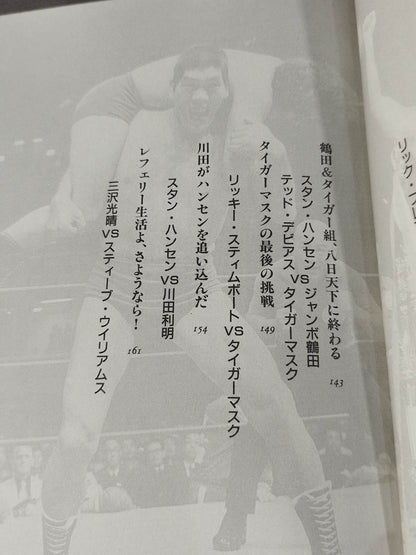 鶴田＆タイガー組、八日天下に終わる 143
スタン・ハンセンVSジャンボ鶴田
テッド・デビアスVSタイガーマスク
タイガーマスクの最後の挑戦 149
リッキー・スティムボートVSタイガーマスク
川田がハンセンを追い込んだ 154
スタン・ハンセンVS川田利明
レフェリー生活よ、さようなら！ 161
三沢光晴VSスティーブ・ウイリアムス